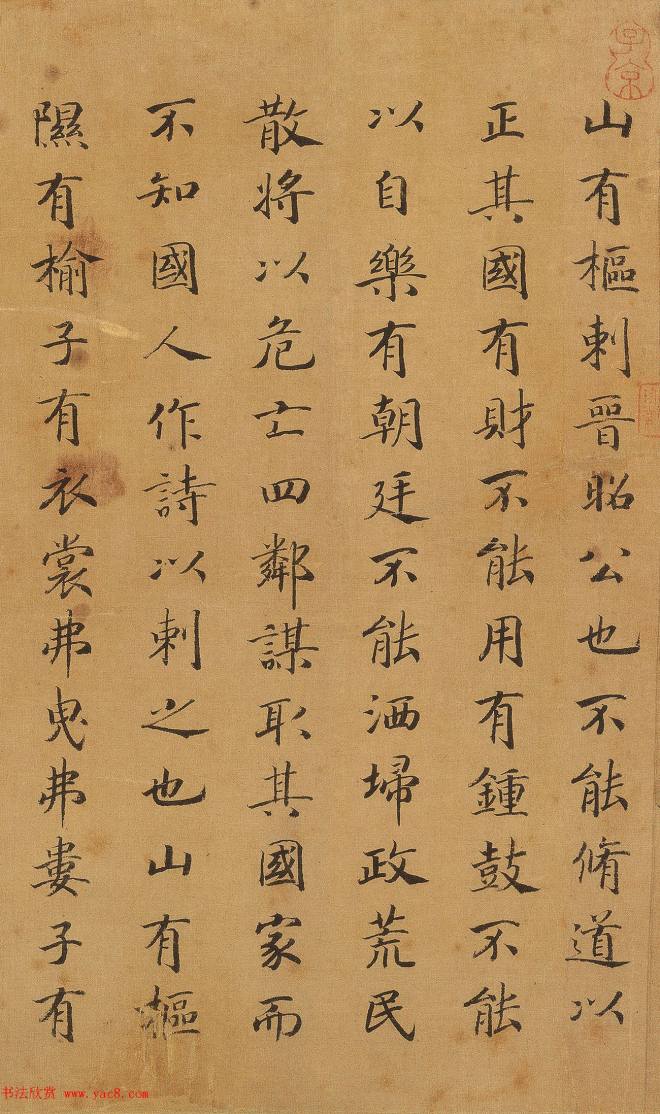 山有樞刺晉昭公也不能脩道以
正其國有財不能用有鍾鼓不能
以自樂有朝廷不能洒埽政荒民
散將以危亡四鄰謀取其國家而
不知國人作詩以刺之也山有樞
隰有榆子有衣裳弗曳弗婁子有
子京
书法欣赏 www.yac8.com